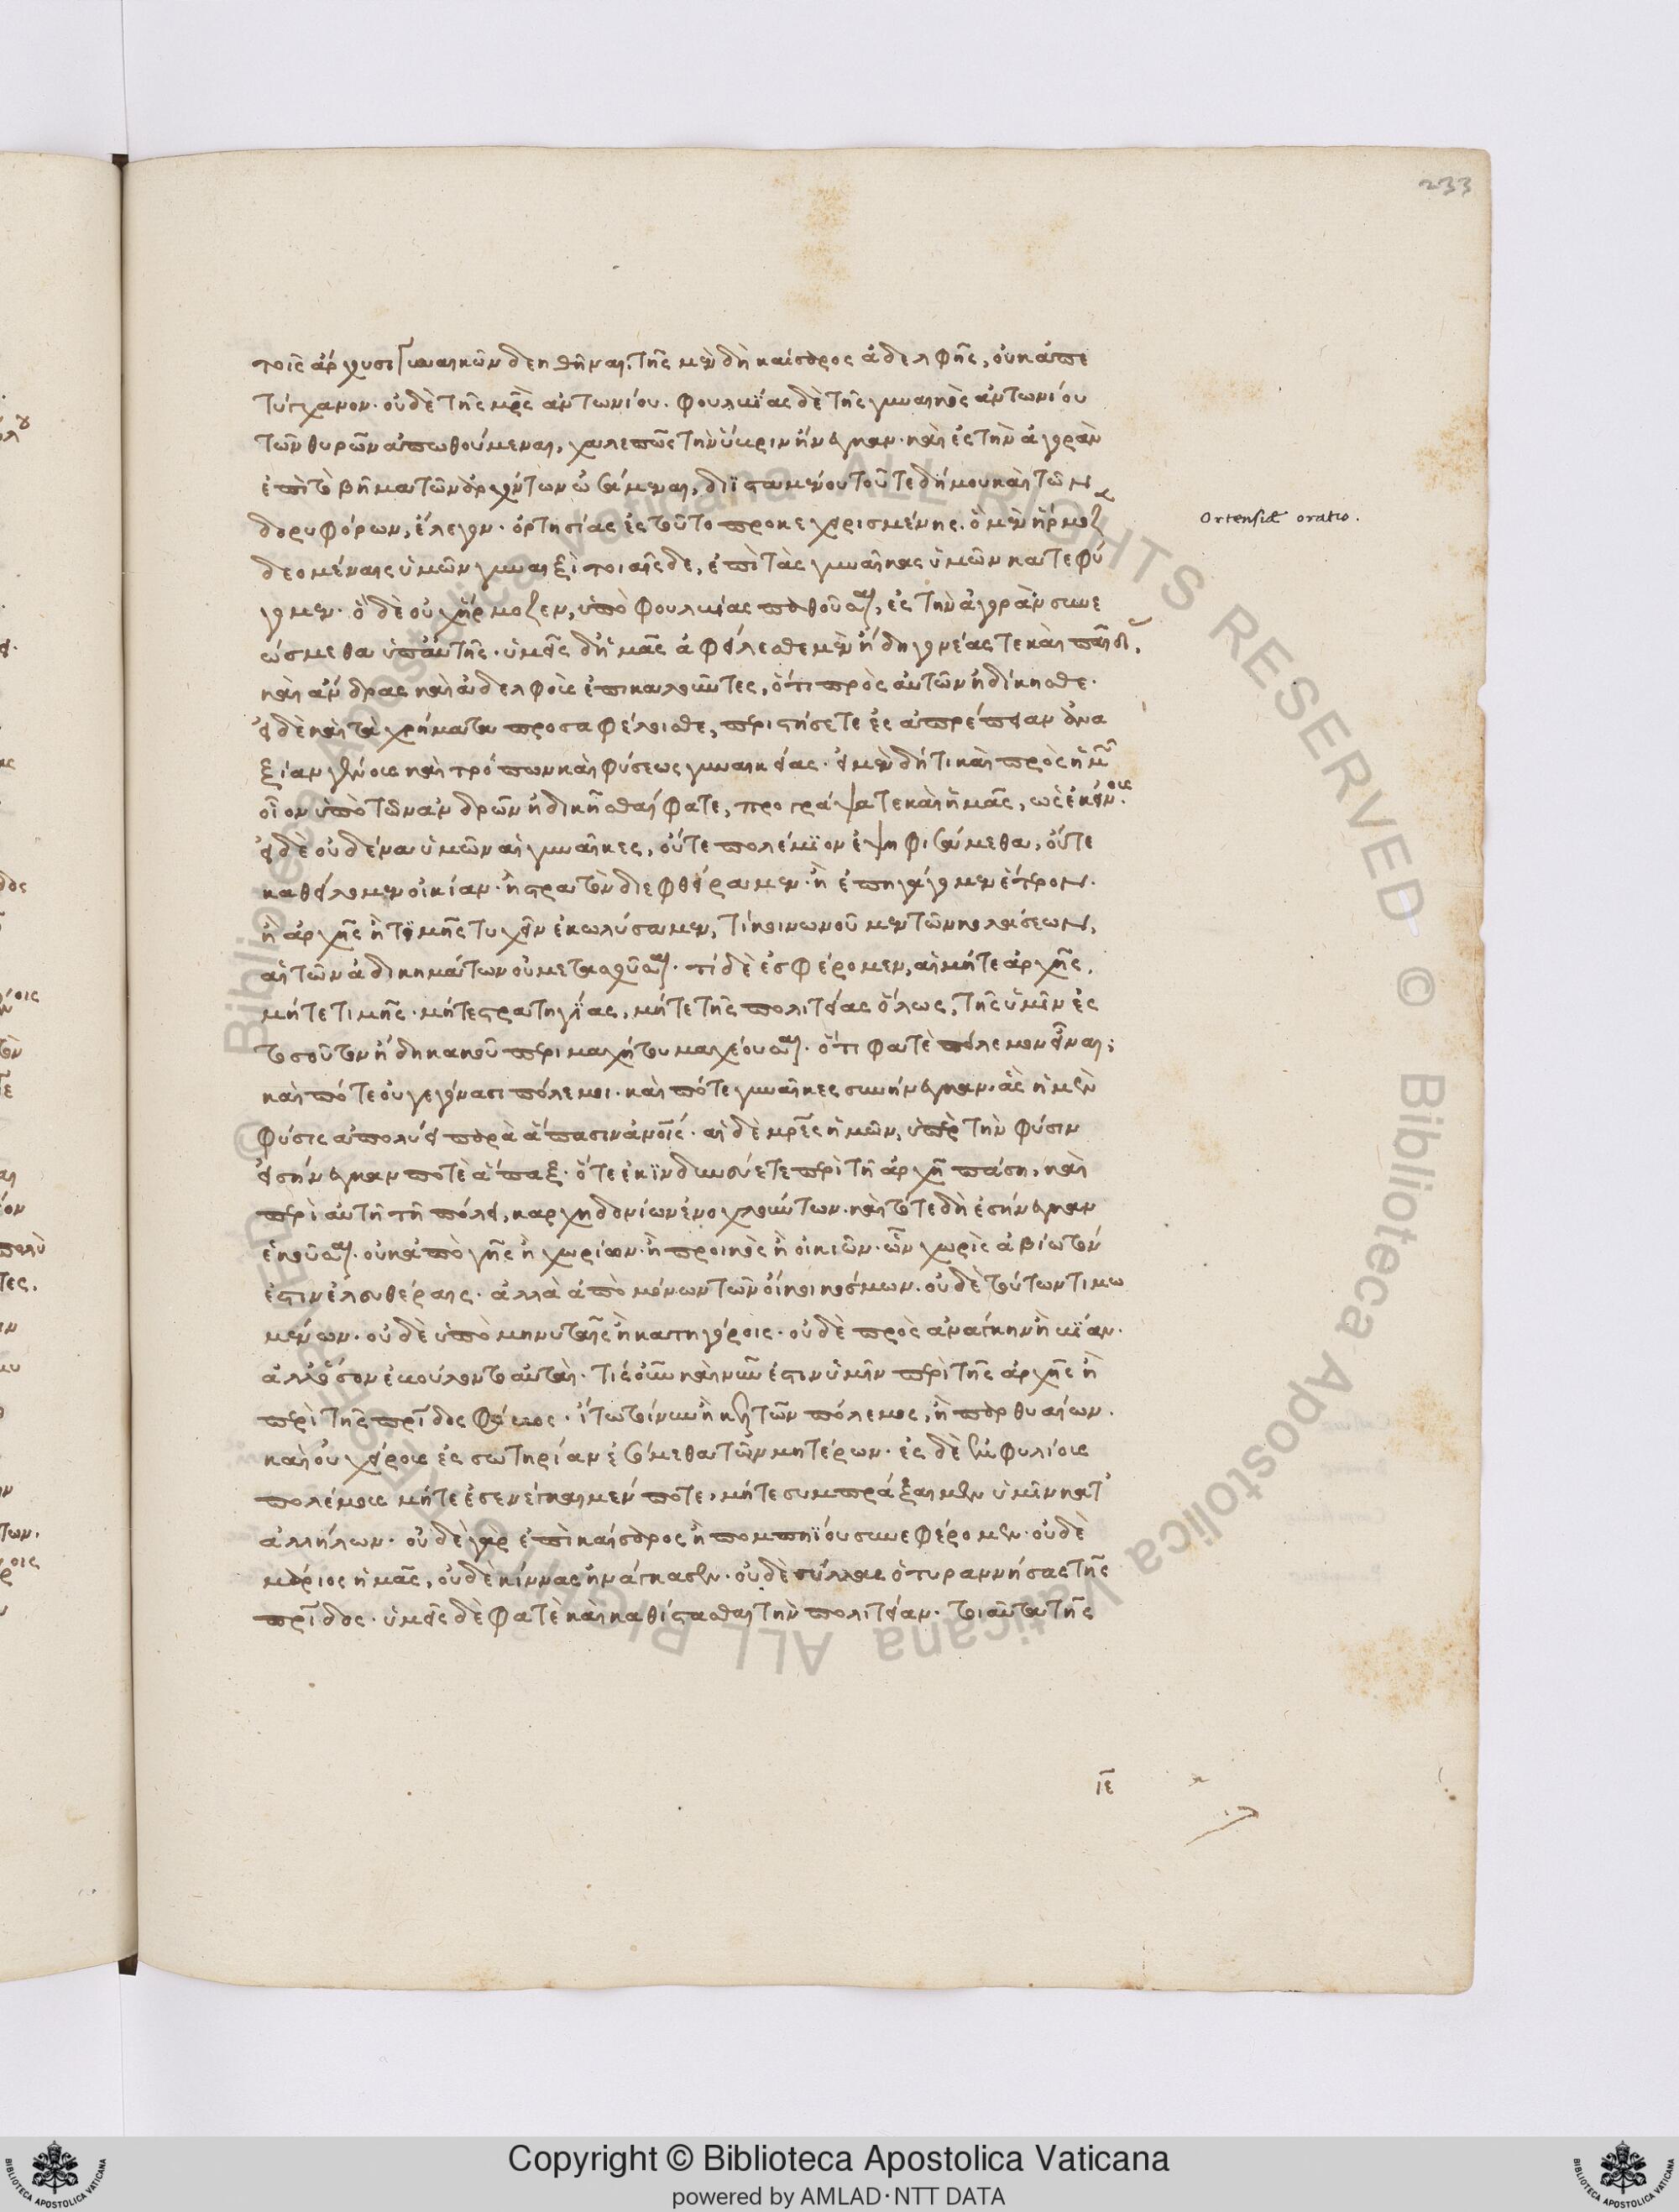 233
τοῖς ἄρχουσι γυναικῶν δεηθῆναι. τῆς μὲν δὴ καίσαρος ἀδελφῆς, οὐκ ἀπε
τύγχανον. οὐδὲ τῆς μρ̅ς ἀντωνίου. φουλβίας δὲ τῆς γυναικὸς ἀντωνίου
τῶν θυρῶν ἀπωθούμεναι, χαλεπῶς τὴν ὕβριν ἤνεγκαν. καὶ ἐς τὴν ἀγορὰν
ἐπὶ τὸ βῆμα τῶν ἀρχόντων ὠσάμεναι, διϊσταμένου τοῦ τε δήμου καὶ τῶν
δορυφόρων, ἔλεγον. ὁρτησίας ἐς τοῦτο προκεχειρισμένης. ὃ μὲν ἥρμοζε
Ortensiæ oratio.
δεομέναις ὑμῶν γυναιξὶ τοιαῖσδε, ἐπὶ τὰς γυναῖκας ὑμῶν κατεφύ
γομεν. ὃ δὲ οὐχ ἥρμοζεν, ὑπὸ φουλβίας παθοῦσαι, ἐς τὴν ἀγορὰν συνε
ώσμεθα ὑπ' αὐτῆς. ὑμεῖς δ' ἡμᾶς ἀφείλεσθε μὲν ἤδη γονέας τε καὶ παῖδας,
καὶ ἄνδρας καὶ ἀδελφοὺς ἐπικαλοῦντες, ὅτι πρὸς αὐτῶν ἠδίκησθε.
εἰ δὲ καὶ τὰ χρήματα προσαφέλοισθε, περιστήσετε ἐς ἀπρέπειαν ἀνα
ξίαν γένους καὶ τρόπων καὶ φύσεως γυναικείας. εἰ μὲν δή τι καὶ πρὸς ἡμῶν
οἷον ὑπὸ τῶν ἀνδρῶν ἠδικῆσθαί φατε, προγράψατε καὶ ἡμᾶς, ὡς ἐκείνους.
εἰ δὲ οὐδένα ὑμῶν αἱ γυναῖκες, οὔτε πολέμϊον ἐψηφισάμεθα, οὔτε
καθείλομεν οἰκίαν. ἢ στρατὸν διεφθείραμεν. ἢ ἐπηγάγομεν ἕτερον.
ἢ ἀρχῆς ἢ τϊμῆς τυχεῖν ἐκωλύσαμεν, τί κοινωνοῦμεν τῶν κολάσεων,
αἳ τῶν ἀδικημάτων οὐ μετασχοῦσαι. τί δὲ ἐσφέρομεν, αἳ μήτε ἀρχῆς,
μήτε τιμῆς. μήτε στρατηγίας, μήτε τῆς πολιτείας ὅλως, τῆς ὑμῖν ἐς
τοσοῦτον ἤδη κακοῦ περιμαχήτου μαχέουσαι. ὅτι φατὲ πόλεμον εἶναι;
καὶ πότε οὐ γεγόνασι πόλεμοι. καὶ πότε γυναῖκες συνήνεγκαν. ἃς ἡ μὲν
φύσις ἀπολύει παρὰ ἅπασιν ἀν̅οις. αἱ δὲ μρ̅ες ἡμῶν, ὑπὲρ τὴν φύσιν
εἰσήνεγκαν ποτὲ ἅπαξ. ὅτε ἐκϊνδυνεύετε περὶ τῇ ἀρχῇ πάσῃ, καὶ
περὶ αὐτῇ τῇ πόλει, καρχηδονίων ἐνοχλούντων. καὶ τότε δὴ ἐσήνεγκαν
ἑκοῦσαι. οὐκ ἀπὸ γῆς ἢ χωρίων. ἢ προικὸς ἢ οἰκιῶν. ὧν χωρὶς ἀβίωτόν
ἐστιν ἐλευθέραις. ἀλλὰ ἀπὸ μόνων τῶν οἴκοι κόσμων. οὐδὲ τούτων τιμω
μένων. οὐδὲ ὑπὸ μηνυταῖς ἢ κατηγόροις. οὐδὲ πρὸς ἀνάγκην ἢ βΐαν.
ἀλλ' ὅσον ἐβούλοντο αὐταί. τίς οὖν καὶ νῦν ἐστιν ὑμῖν περὶ τῆς ἀρχῆς ἢ
περὶ τῆς πρ̅ίδος φόβος. ἴτω τοίνυν ἢ κελτῶν πόλεμος, ἢ παρθυαίων.
καὶ οὐ χείρους ἐς σωτηρίαν ἐσόμεθα τῶν μητέρων. ἐς δὲ ἐμφυλίους
πολέμους μήτε ἐσενέγκαιμέν ποτε, μήτε συμπράξαιμεν ὑμῖν κατ'
ἀλλήλων. οὐδὲ γὰρ ἐπὶ καίσαρος ἢ πομπηΐου συνεφέρομεν. οὐδὲ
μάριος ἡμᾶς, οὐδὲ κίννας ἠνάγκασεν. οὐδὲ σύλλας ὁ τυραννήσας τῆς
πρ̅ίδος. ὑμεῖς δὲ φατὲ καὶ καθίστασθαι τὴν πολιτείαν. τοιαῦτα τῆς
ιε̅
Copyright © Biblioteca Apostolica Vaticana
powered by AMLAD·NTT DATA